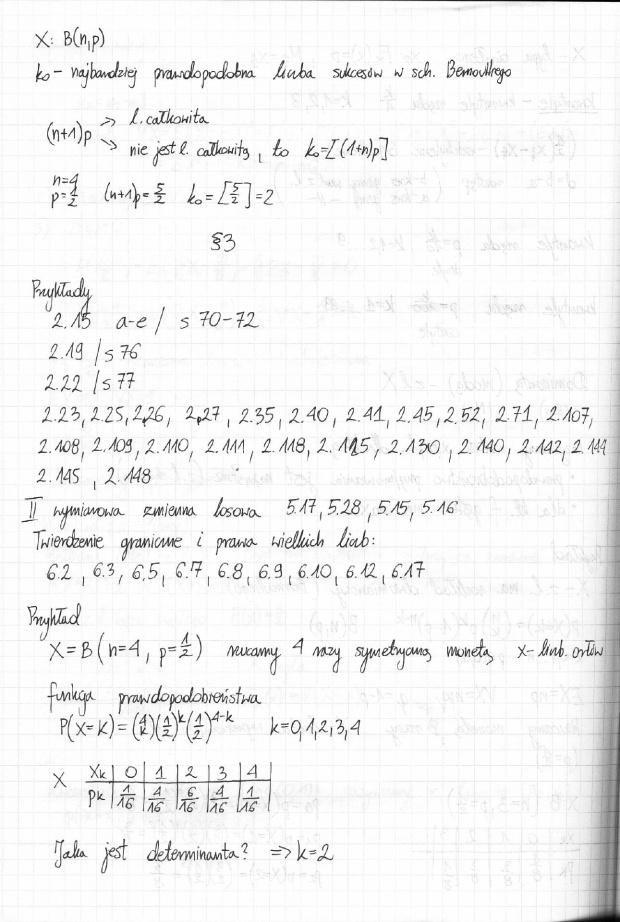 X: B(n,p)
k₀ - najbardziej prawdopodobna liczba sukcesów w sch. Bernoulliego
(n+1)p → l. całkowita
→ nie jest l. całkowitą, to k₀=[(1+n)p]
n=4
p=1/2 (n+1)p = 5/2 k₀=[5/2]=2
§3
Przykłady
2.15 a-e / s 70-72
2.19 / s 76
2.22 / s 77
2.23, 2.25, 2.26, 2.27, 2.35, 2.40, 2.41, 2.45, 2.52, 2.71, 2.107,
2.108, 2.109, 2.110, 2.111, 2.118, 2.125, 2.130, 2.140, 2.142, 2.144
2.145, 2.148
II wymiarowa zmienna losowa 5.17, 5.28, 5.15, 5.16
Twierdzenie graniczne i prawa wielkich liczb:
6.2, 6.3, 6.5, 6.7, 6.8, 6.9, 6.10, 6.12, 6.17
Przykład
X = B(n=4, p=1/2) rzucamy 4 razy symetryczną monetą, X- liczb. orłów
funkcja prawdopodobieństwa
P(X=k) = (4 k)(1/2)^k(1/2)^4-k k=0,1,2,3,4
X xk | 0 | 1 | 2 | 3 | 4
pk | 1/16 | 4/16 | 6/16 | 4/16 | 1/16
Jaka jest determinanta? ⇒ k=2